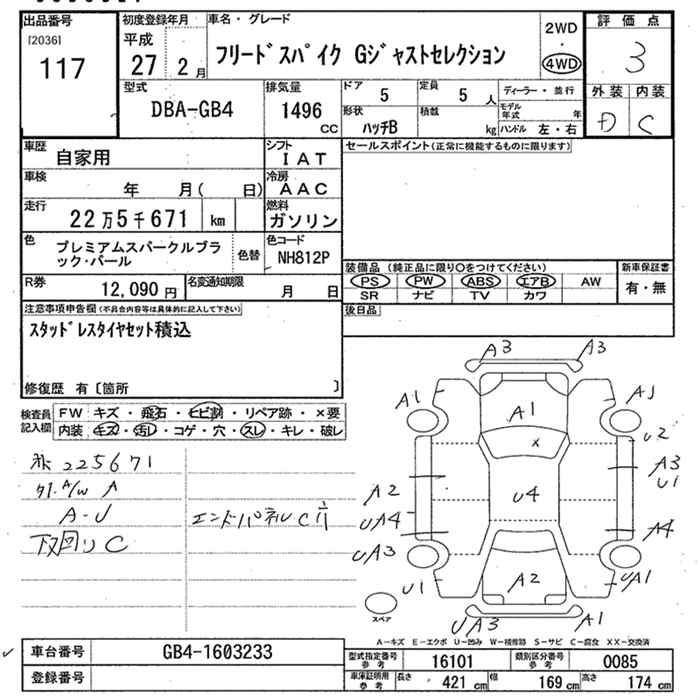 出品番号
[2036]
117
初度登録年月
平成
27 2月
車名・グレード
フリードスパイク Gジャストセレクション
2WD
・
4WD
評価点
3
外装 内装
D C
型式
DBA-GB4
排気量
1496 CC
ドア 5
定員 5 人
ディーラー・並行
形状 ハッチB
積載 kg
モデル年式 年
ハンドル 左・右
車歴 自家用
シフト IAT
車検 年 月( 日)
冷房 AAC
走行 22万5千671 km
燃料 ガソリン
色 プレミアムスパークルブラック・パール
色替
色コード NH812P
R券 12,090円
名変通知期限 月 日
セールスポイント(正常に機能するものに限ります)
装備品 (純正品に限り○をつけてください)
PS PW ABS エアB AW
SR ナビ TV カワ
新車保証書
有・無
後日品
注意事項申告欄(不具合内容等は具体的に記入して下さい)
スタッドレスタイヤセット積込
修復歴 有〔箇所 〕
検査員記入欄
FW キズ・飛石・ヒビ割・リペア跡・×要
内装 キズ・汚レ・コゲ・穴・スレ・キレ・破レ
225671
A/W A
A-U
下回りC
エンドパネルC
A3 A3
A1 A1 A1
U2
x
A3
U1
A2
U4
UA4
A4
UA3
UA1
U1
A2
UA3 A1
スペア
A-キズ E-エクボ U-凹み W-補修跡 S-サビ C-腐食 XX-交換済
車台番号 GB4-1603233
登録番号
型式指定番号 参考 16101
類別区分番号 参考 0085
車庫証明用 参考
長さ 421cm 幅 169cm 高さ 174cm